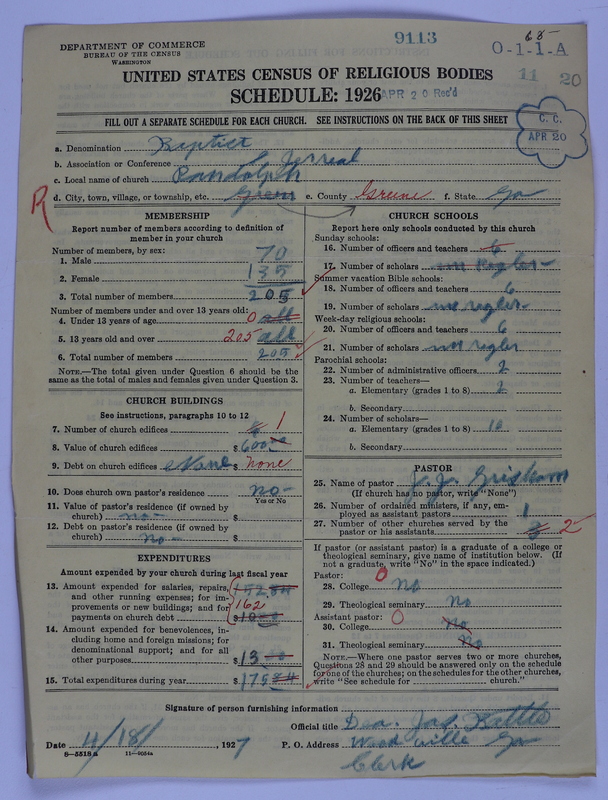 9113
65
DEPARTMENT OF COMMERCE
BUREAU OF THE CENSUS
WASHINGTON
O-1-1-A
11 20
UNITED STATES CENSUS OF RELIGIOUS BODIES
SCHEDULE: 1926
APR 20 Rec'd
FILL OUT A SEPARATE SCHEDULE FOR EACH CHURCH. SEE INSTRUCTIONS ON THE BACK OF THIS SHEET
C. C.
APR 20
a. Denomination Baptist
b. Association or Conference
c. Local name of church Randolph
R
d. City, town, village, or township, etc. Green e. County Greene f. State Ga
MEMBERSHIP
Report number of members according to definition of
member in your church
Number of members, by sex:
1. Male 70
2. Female 135
3. Total number of members 205
Number of members under and over 13 years old:
4. Under 13 years of age 0 all
5. 13 years old and over 205 all
6. Total number of members 205
NOTE.—The total given under Question 6 should be
same as the total of males and females given under Question 3.
CHURCH BUILDINGS
See instructions, paragraphs 10 to 12
7. Number of church edifices 1
8. Value of church edifices $ 600
9. Debt on church edifices None $ none
10. Does church own pastor's residence no
Yes or No
11. Value of pastor's residence (if owned by
church) no $
12. Debt on pastor's residence (if owned by
church) no $
EXPENDITURES
Amount expended by your church during last fiscal year
13. Amount expended for salaries, repairs,
and other running expenses; for im-
provements or new buildings; and for
payments on church debt 162 $
14. Amount expended for benevolences, in-
cluding home and foreign missions; for
denominational support; and for all
other purposes $ 13
15. Total expenditures during year $ 175 84
CHURCH SCHOOLS
Report here only schools conducted by this church
Sunday schools:
16. Number of officers and teachers 6
17. Number of scholars
Summer vacation Bible schools:
18. Number of officers and teachers 6
19. Number of scholars
Week-day religious schools:
20. Number of officers and teachers 6
21. Number of scholars
Parochial schools:
22. Number of administrative officers 2
23. Number of teachers—
a. Elementary (grades 1 to 8) 2
b. Secondary
24. Number of scholars—
a. Elementary (grades 1 to 8) 10
b. Secondary
PASTOR
25. Name of pastor J. J. Grisham
(If church has no pastor, write "None")
26. Number of ordained ministers, if any, em-
ployed as assistant pastors 1
27. Number of other churches served by the
pastor or his assistants 2
If pastor (or assistant pastor) is a graduate of a college or
theological seminary, give name of institution below. (If
not a graduate, write "No" in the space indicated.)
Pastor: 0
28. College No
29. Theological seminary No
Assistant pastor: 0
30. College No
31. Theological seminary No
NOTE.—Where one pastor serves two or more churches,
Questions 28 and 29 should be answered only on the schedule
for one of the churches; on the schedules for the other churches,
write "See schedule for church."
Signature of person furnishing information
Official title Dea. Jas. Battle
Date 4/18/, 1927 P. O. Address Woodville Ga
8—5518a 11—9054a
Clerk